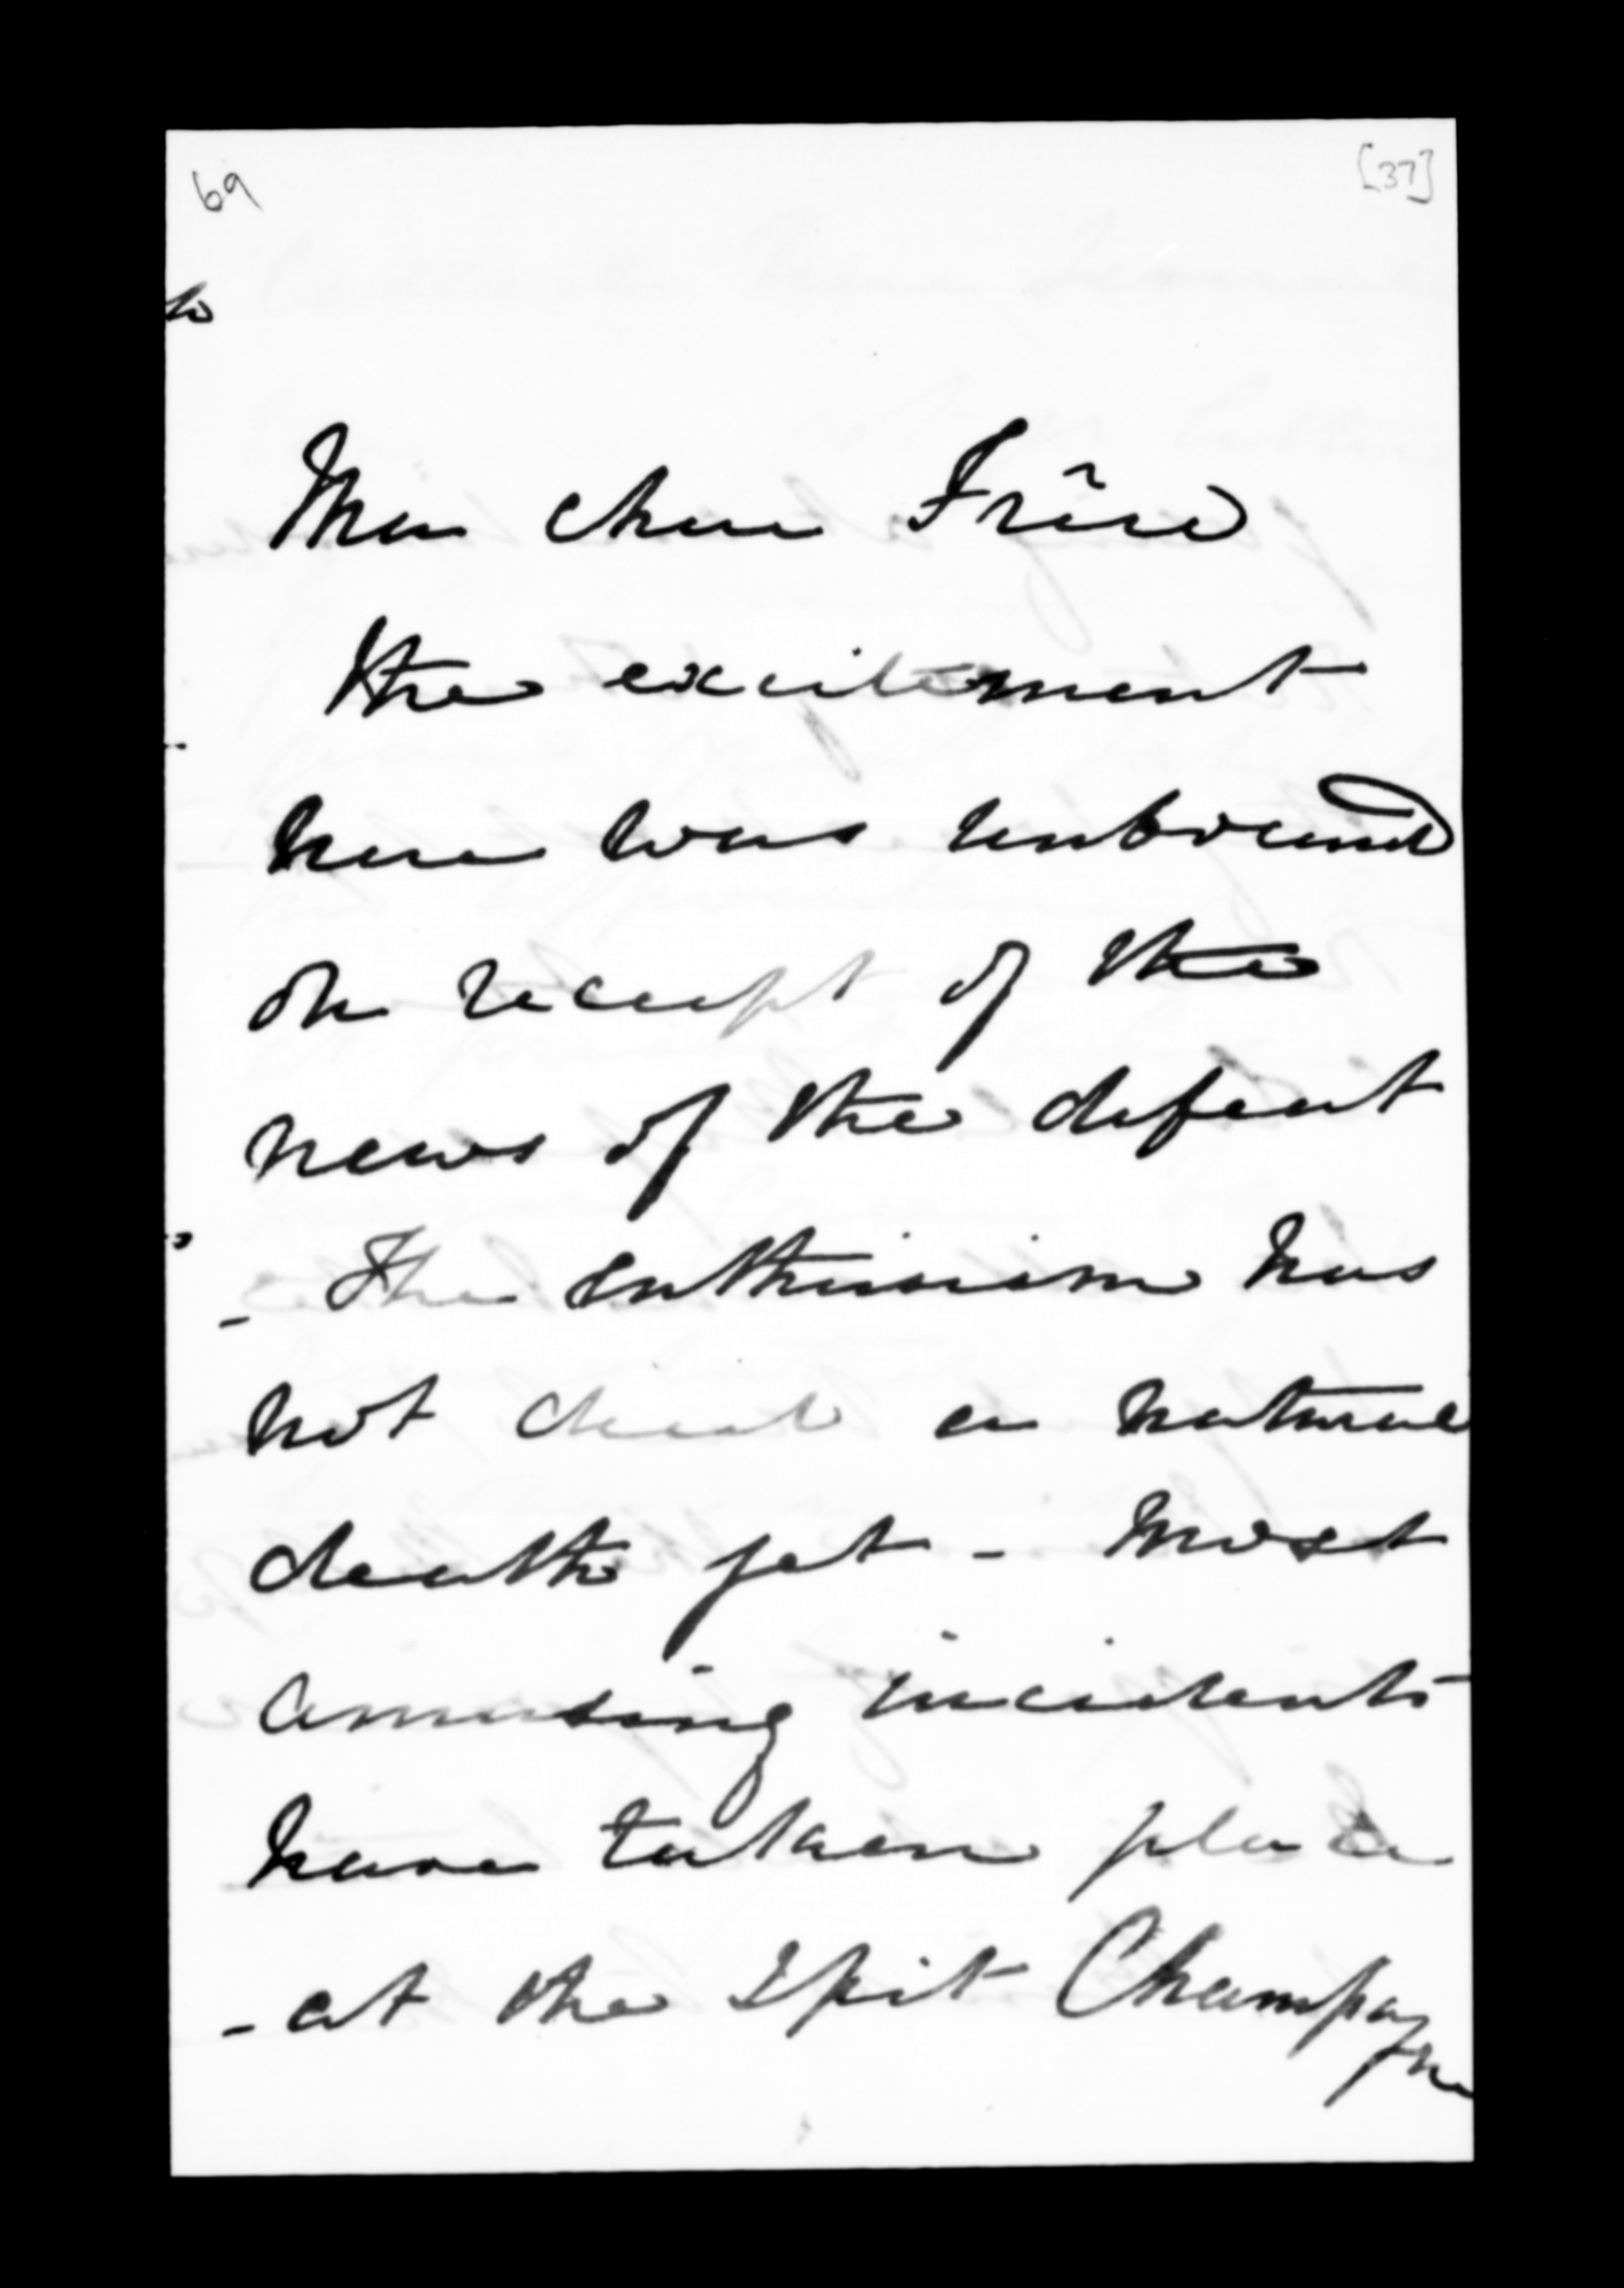 69 [37]
to
Mon cher Frère
the excitement
here was unbound
on receipt of the
news of the defeat
- The enthusiasm has
not died a natural
death yet - Most
amusing incidents
have taken place
- at the Spit Champagne